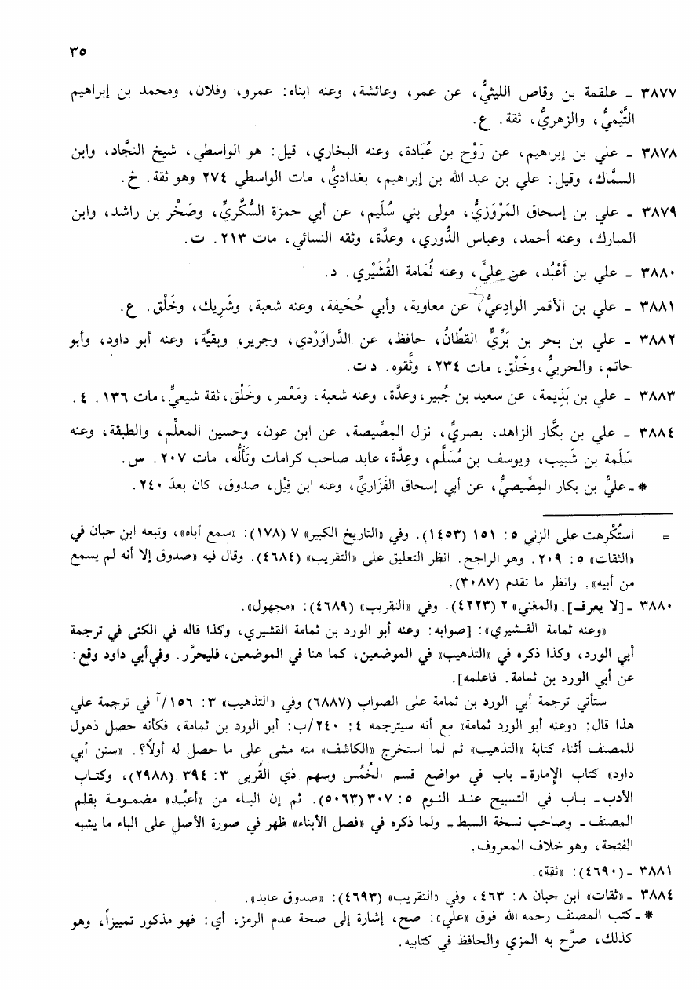 ٣٥
٣٨٧٧ ـ علقمة بن وقاص الليثيُّ، عن عمر، وعائشة، وعنه ابناه: عمرو، وفلان، ومحمد بن إبراهيم
التَّيْميُّ، والزهريُّ، ثقة. ع.
٣٨٧٨ ـ علي بن إبراهيم، عن رَوْح بن عُبَادة، وعنه البخاري، قيل: هو الواسطي، شيخ النجَّاد، وابن
السمَّاك، وقيل: علي بن عبد الله بن إبراهيم، بغداديُّ، مات الواسطي ٢٧٤ وهو ثقة. خ.
٣٨٧٩ ـ علي بن إسحاق المَرْوَزيُّ، مولى بني سُلَيم، عن أبي حمزة السُّكَّريِّ، وصَخْر بن راشد، وابن
المبارك، وعنه أحمد، وعباس الدُّوري، وعدَّة، وثقه النسائي، مات ٢١٣. ت.
٣٨٨٠ ـ علي بن أَعْبُد، عن عليٍّ، وعنه ثُمامة القُشَيْري. د.
٣٨٨١ ـ علي بن الأقمر الوادِعيُّ، عن معاوية، وأبي جُحَيفة، وعنه شعبة، وشَريك، وخَلْق. ع.
٣٨٨٢ ـ علي بن بحر بن بَرِّيٍّ القطَّانُ، حافظ، عن الدَّراوَرْدي، وجرير، وبقيَّة، وعنه أبو داود، وأبو
حاتم، والحربيُّ، وخَلْق، مات ٢٣٤، وثَّقوه. د ت.
٣٨٨٣ ـ علي بن بَذِيمة، عن سعيد بن جُبير، وعدَّة، وعنه شعبة، ومَعْمَر، وخَلْق، ثقة شيعيٌّ، مات ١٣٦. ٤.
٣٨٨٤ ـ علي بن بكَّار الزاهد، بصريٌّ، نزل المِصِّيصة، عن ابن عون، وحسين المعلِّم، والطبقة، وعنه
سَلَمة بن شَبيب، ويوسف بن مُسَلَّم، وعِدَّة، عابد صاحب كرامات وتألُّه، مات ٢٠٧. س.
* ـ عليُّ بن بكار المِصِّيصيُّ، عن أبي إسحاق الفَزَاريِّ، وعنه ابن فِيْل، صدوق، كان بعدَ ٢٤٠.
= استُنْكرهت على الزنى ٥: ١٥١ (١٤٥٣). وفي «التاريخ الكبير» ٧ (١٧٨): «سمع أباه»، وتبعه ابن حبان في
«الثقات» ٥: ٢٠٩. وهو الراجح. انظر التعليق على «التقريب» (٤٦٨٤). وقال فيه «صدوق إلا أنه لم يسمع
من أبيه». وانظر ما تقدم (٣٠٨٧).
٣٨٨٠ ـ [لا يعرف]. «المغني» ٢ (٤٢٢٣). وفي «التقريب» (٤٦٨٩): «مجهول».
«وعنه ثمامة القشيري»: [صوابه: وعنه أبو الورد بن ثمامة القشيري، وكذا قاله في الكنى في ترجمة
أبي الورد، وكذا ذكره في «التذهيب» في الموضعين، كما هنا في الموضعين، فليحرَّر. وفي أبي داود وقع:
عن أبي الورد بن ثمامة. فاعلمه].
ستأتي ترجمة أبي الورد بن ثمامة على الصواب (٦٨٨٧) وفي «التذهيب» ٣: ١٥٦/أ في ترجمة علي
هذا قال: «وعنه أبو الورد ثمامة» مع أنه سيترجمه ٤: ٢٤٠/ب: أبو الورد بن ثمامة، فكأنه حصل ذهول
للمصنف أثناء كتابة «التذهيب» ثم لما استخرج «الكاشف» منه مشى على ما حصل له أولاً؟. «سنن أبي
داود» كتاب الإمارة ـ باب في مواضع قسم الخُمُس وسهم ذي القربى ٣: ٣٩٤ (٢٩٨٨)، وكتاب
الأدب ـ باب في التسبيح عند النوم ٥: ٣٠٧ (٥٠٦٣). ثم إن الباء من «أعبُد» مضمومة بقلم
المصنف ـ وصاحب نسخة السبط ـ ولما ذكره في «فصل الأبناء» ظهر في صورة الأصل على الباء ما يشبه
الفتحة، وهو خلاف المعروف.
٣٨٨١ ـ (٤٦٩٠): «ثقة».
٣٨٨٤ ـ «ثقات» ابن حبان ٨: ٤٦٣، وفي «التقريب» (٤٦٩٣): «صدوق عابد».
* ـ كتب المصنف رحمه الله فوق «علي»: صح، إشارة إلى صحة عدم الرمز، أي: فهو مذكور تمييزاً، وهو
كذلك، صرَّح به المزي والحافظ في كتابيه.